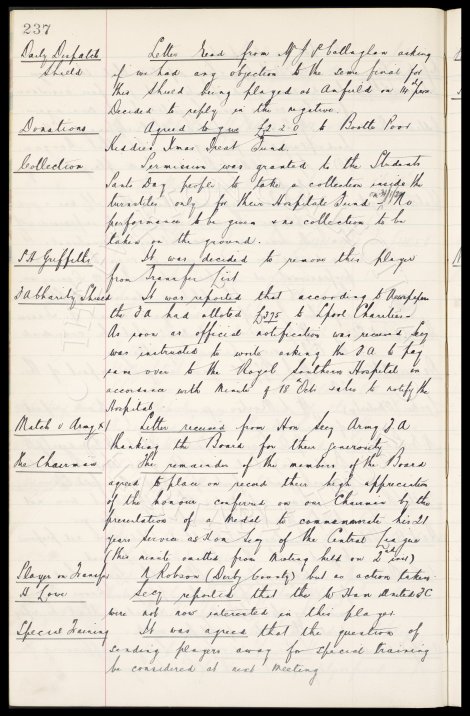 237
Daily Dispatch Shield
Letter read from Mr J P Callaghan asking
if we had any objection to the semi final for
this Shield being played at Anfield on
Decided to reply in the negative.
Donations
Agreed to give £2 2 0 to Bootle Poor
Kiddies Xmas Treat Fund.
Collection
Permission was granted to the Students
Pants Day people to take a collection inside the
turnstiles only for their Hospitals Fund No
performance to be given & no collection to be
taken on the ground.
S A Griffiths
It was decided to remove this player
from Transfer List
F A Charity Shield
It was reported that according to Newspapers
the F A had alloted £375 to Lpool Charities
As soon as official notification was received Secy
was instructed to write asking the F A to pay
sum over to the Royal Southern Hospital in
accordance with Minute of 18th Oct & also to notify the
Hospital.
Match v Army XI
Letter received from Hon Secy Army F A
thanking the Board for their generosity
The Chairman
The remainder of the members of the Board
agreed to place on record their high appreciation
of the honour conferred on our Chairman by the
presentation of a Medal to commemorate his 21
years service as Hon Secy of the Central League
(this minute omitted from Meeting held on 2nd inst)
Player on Transfer
R Robson (Derby County) but no action taken.
H Lowe
Secy reported that the W Ham United FC
were not now interested in this player.
Special Training
It was agreed that the question of
sending players away for special training
be considered at next meeting